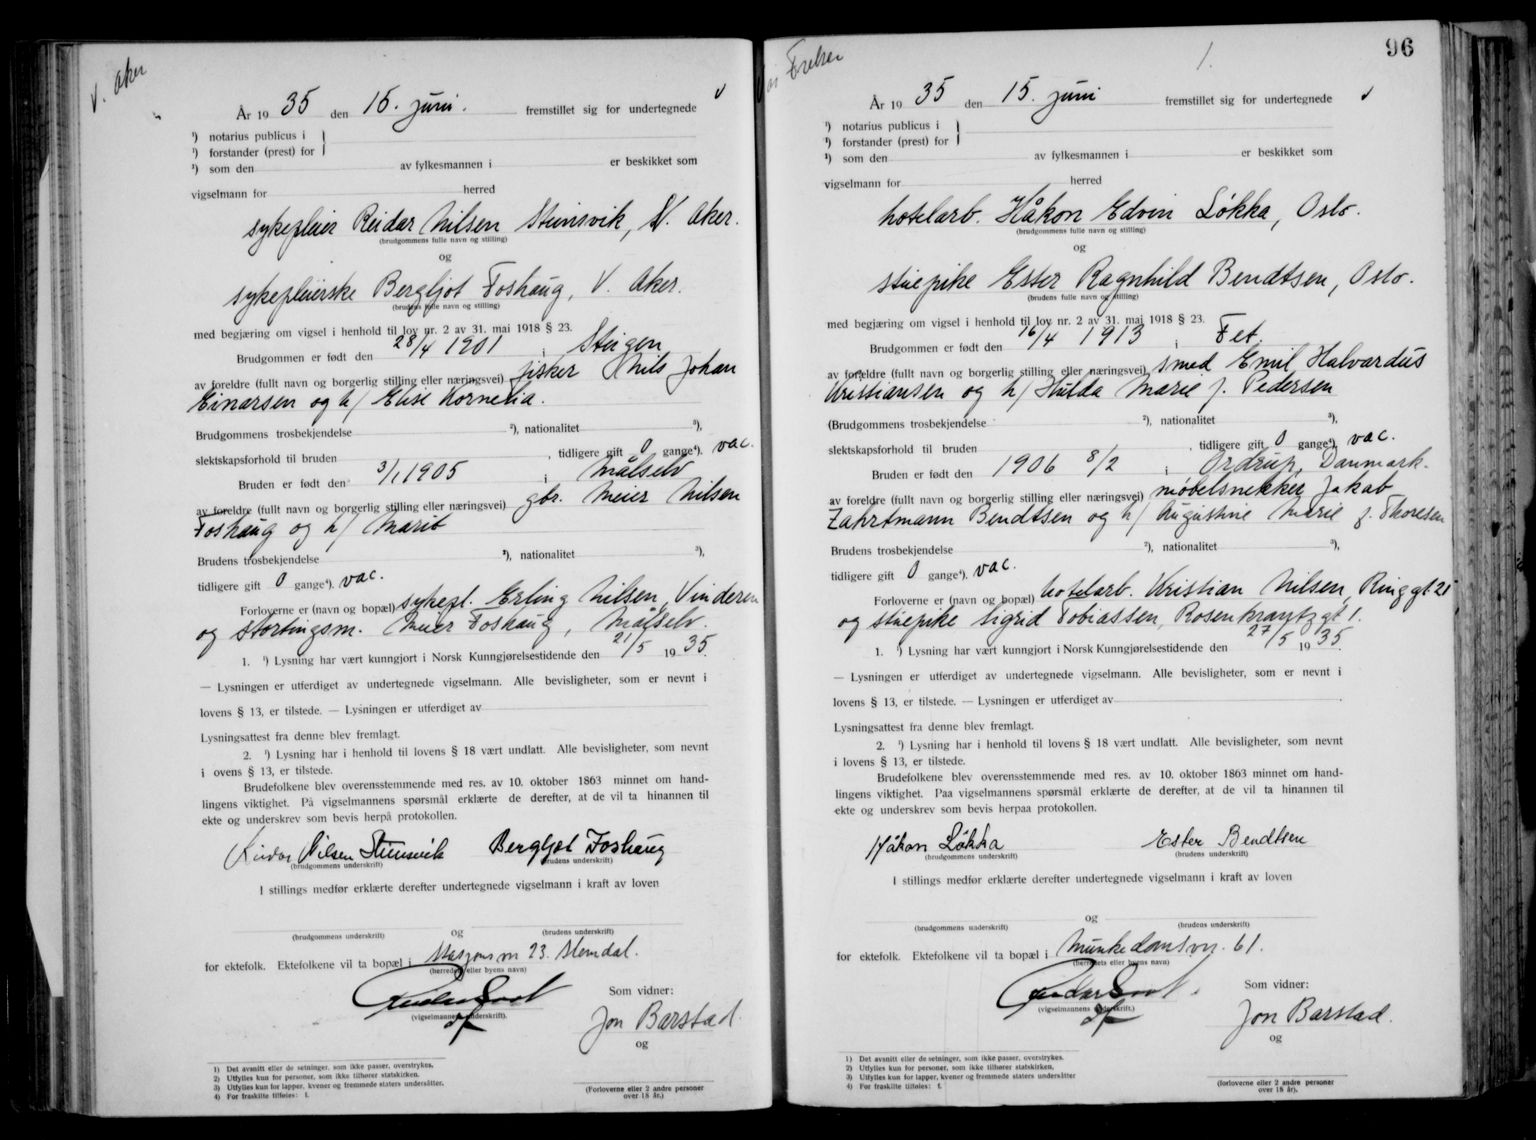 V. Aker
År 1935 den 15. juni. fremstillet sig for undertegnede
¹) notarius publicus i
¹) forstander (prest) for
¹) som den av fylkesmannen i er beskikket som
vigselmann for herred
sykepleier Reidar Nilsen Steinsvik, V. Aker.
(brudgommens fulle navn og stilling)
og
sykepleierske Bergljot Foshaug, V. Aker.
(brudens fulle navn og stilling)
med begjæring om vigsel i henhold til lov nr. 2 av 31. mai 1918 § 23.
Brudgommen er født den 28/4 1901 i Steigen
av foreldre (fullt navn og borgerlig stilling eller næringsvei) fisker Nils Johan
Einarsen og h/ Elise Kornelia.
Brudgommens trosbekjendelse ²), nationalitet ³),
slektskapsforhold til bruden , tidligere gift 0 gange⁴). vac.
Bruden er født den 3/1 1905 i Målselv
av foreldre (fullt navn og borgerlig stilling eller næringsvei) gbr. Meier Nilsen
Foshaug og h/ Marit
Brudens trosbekjendelse ²), nationalitet ³),
tidligere gift 0 gange⁴). vac.
Forloverne er (navn og bopæl) sykepl. Erling Nilsen, Vinderen
og stortingsm. Meier Foshaug, Målselv.
1. ¹) Lysning har vært kunngjort i Norsk Kunngjørelsestidende den 21/5 1935.
— Lysningen er utferdiget av undertegnede vigselmann. Alle bevisligheter, som er nevnt i
lovens § 13, er tilstede. — Lysningen er utferdiget av
Lysningsattest fra denne blev fremlagt.
2. ¹) Lysning har i henhold til lovens § 18 vært undlatt. Alle bevisligheter, som nevnt
i ovens § 13, er tilstede.
Brudefolkene blev overensstemmende med res. av 10. oktober 1863 minnet om hand-
lingens viktighet. På vigselmannens spørsmål erklærte de derefter, at de vil ta hinannen til
ekte og underskrev som bevis herpå protokollen.
Reidar Nilsen Steinsvik Bergljot Foshaug
(brudgommens underskrift) (brudens underskrift)
I stillings medfør erklærte derefter undertegnede vigselmann i kraft av loven
og
(brudgommens underskrift) (brudens underskrift)
for ektefolk. Ektefolkene vil ta bopæl i Stasjonsvn 23. Slemdal.
(herredets eller byens navn)
Som vidner:
(vigselmannens underskrift).
Jon Barstad.
og
1) Det avsnitt eller de setninger, som ikke passer, overstrykes.
2) Utfylles kun for personer, som ikke tilhører statskirken.
3) Utfylles kun for lapper, kvener og fremmede staters undersåtter.
4) For fraskilte tilføies: f.
(Forloverne eller 2 andre personer
over 18 år.)
Frelser
1.
96
År 1935 den 15. juni fremstillet sig for undertegnede
¹) notarius publicus i
¹) forstander (prest) for
¹) som den av fylkesmannen i er beskikket som
vigselmann for herred
hotelarb. Håkon Edvin Løkka, Oslo.
(brudgommens fulle navn og stilling)
og
stuepike Ester Ragnhild Bendtsen, Oslo.
(brudens fulle navn og stilling)
med begjæring om vigsel i henhold til lov nr. 2 av 31. mai 1918 § 23.
Brudgommen er født den 16/4 1913 i Fet.
av foreldre (fullt navn og borgerlig stilling eller næringsvei) smed Emil Halvardus
Kristiansen og h/ Hulda Marie f. Pedersen
(Brudgommens trosbekjendelse ²), nationalitet ³),
slektskapsforhold til bruden , tidligere gift 0 gange⁴), vac.
Bruden er født den 1906 8/2 i Ordrup, Danmark.
av foreldre (fullt navn og borgerlig stilling eller næringsvei) møbelsnekker Jakob
Zahrtmann Bendtsen og h/ Augustine Marie f. Thoresen
Brudens trosbekjendelse ²), nationalitet ³),
tidligere gift 0 gange⁴). vac.
Forloverne er (navn og bopæl) hotelarb. Kristian Nilsen, Ringgt 21
og stuepike Sigrid Tobiassen, Rosenkrantzgt 1.
1. ¹) Lysning har vært kunngjort i Norsk Kunngjørelsestidende den 27/5 1935.
— Lysningen er utferdiget av undertegnede vigselmann. Alle bevisligheter, som er nevnt i
lovens § 13, er tilstede. — Lysningen er utferdiget av
Lysningsattest fra denne blev fremlagt.
2. ¹) Lysning har i henhold til lovens § 18 vært undlatt. Alle bevisligheter, som nevnt
i lovens § 13, er tilstede.
Brudefolkene blev overensstemmende med res. av 10. oktober 1863 minnet om hand-
lingens viktighet. Paa vigselmannens spørsmål erklærte de derefter, at de vil ta hinannen til
ekte og underskrev som bevis herpaa protokollen.
Håkon Løkka Ester Bendtsen
(brudgommens underskrift) (brudens underskrift)
I stillings medfør erklærte derefter undertegnede vigselmann i kraft av loven
og
(brudgommens underskrift) (brudens underskrift)
for ektefolk. Ektefolkene vil ta bopæl i Munkedamsvn. 61.
(herredets eller byens navn)
Som vidner:
(vigselmannens underskrift.)
Jon Barstad.
og
1) Det avsnitt eller de setninger, som ikke passer, overstrykes.
2) Utfylles kun for personer, som ikke tilhører statskirken.
3) Utfylles kun for lapper, kvener og fremmede staters undersåtter
4) For fraskilte tilføies: f.
(forloverne eller 2 andre personer
over 18 år).